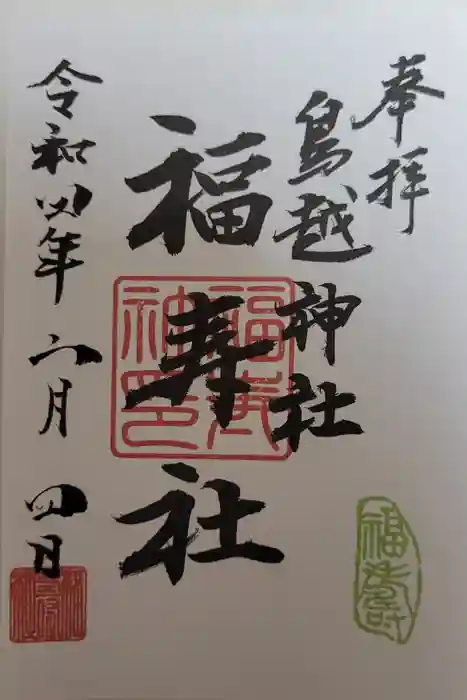 奉拝
鳥越神社
福寿社
令和四年六月四日
福寿
神印
福寿